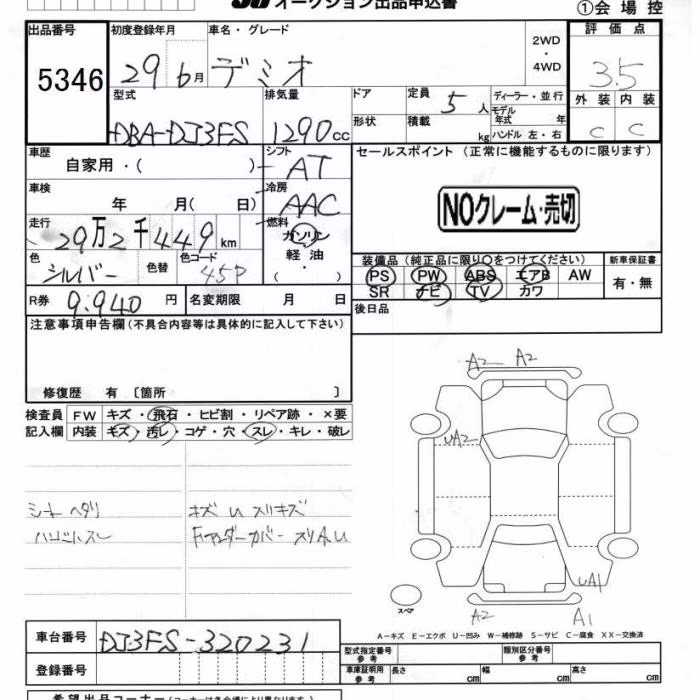 オークション出品申込書
①会場控
出品番号 初度登録年月 車名・グレード 2WD・4WD 評価点
5346 29 6月 デミオ 3.5
型式 排気量 ドア 定員 5人 ディーラー・並行 外装 内装
DBA-DJ3FS 1290cc 形状 積載 kg モデル年式 年 ハンドル 左・右 C C
車歴 自家用・( ) シフト AT セールスポイント (正常に機能するものに限ります)
車検 年 月( 日) 冷房 AAC
NOクレーム・売切
走行 29万2千449km 燃料 ガソリン・軽油・( )
色 シルバー 色替 色コード 45P
装備品(純正品に限り○をつけてください) 新車保証書
PS PW ABS エアB AW 有・無
SR ナビ TV カワ
R券 9.940円 名変期限 月 日 後日品
注意事項申告欄(不具合内容等は具体的に記入して下さい)
修復歴 有 〔箇所 〕
検査員 FW キズ・飛石・ヒビ割・リペア跡・×要
記入欄 内装 キズ・汚レ・コゲ・穴・スレ・キレ・破レ
A2 A2
UA2
シートヘタリ キズ U スリキズ
ハンドルスレ Fアンダーカバースリキズ U
UA1
スペア A2 A1
A-キズ E-エクボ U-凹み W-補修跡 S-サビ C-腐食 XX-交換済
車台番号 DJ3FS-320231
型式指定番号 参考 類別区分番号 参考
登録番号 車庫証明用 参考 長さ cm 幅 cm 高さ cm
希望出品コーナー